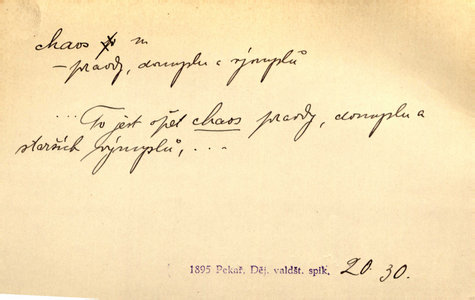 chaos m
– pravdy, domyslu a výmyslů
... To jest opět chaos pravdy, domyslu a
starších výmyslů, ...
1895 Pekař, Děj. valdšt. spik. 20 30.